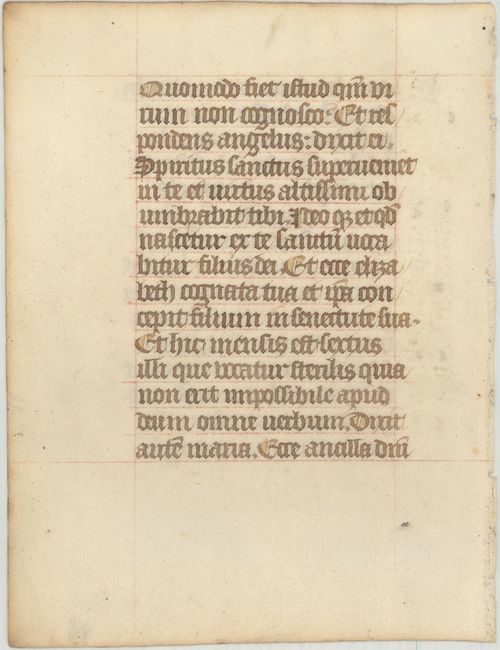 Quomodo fiet istud qm̄ vi
rum non cognosco: Et res
pondens angelus: dixit ei.
Spiritus sanctus superueniet
in te et uirtus altissimi ob
umbrabit tibi. Ideo qꝫ et qd̄
nascetur ex te sanctū uoca
bitur filius dei. Et ecce eliza
beth cognata tua et ip̄a con
cepit filium in senectute sua.
Et hic mensis est sextus
illi que vocatur sterilis quia
non erit impossibile apud
deum omne uerbum. Dixit
autē maria. Ecce ancilla dn̄i